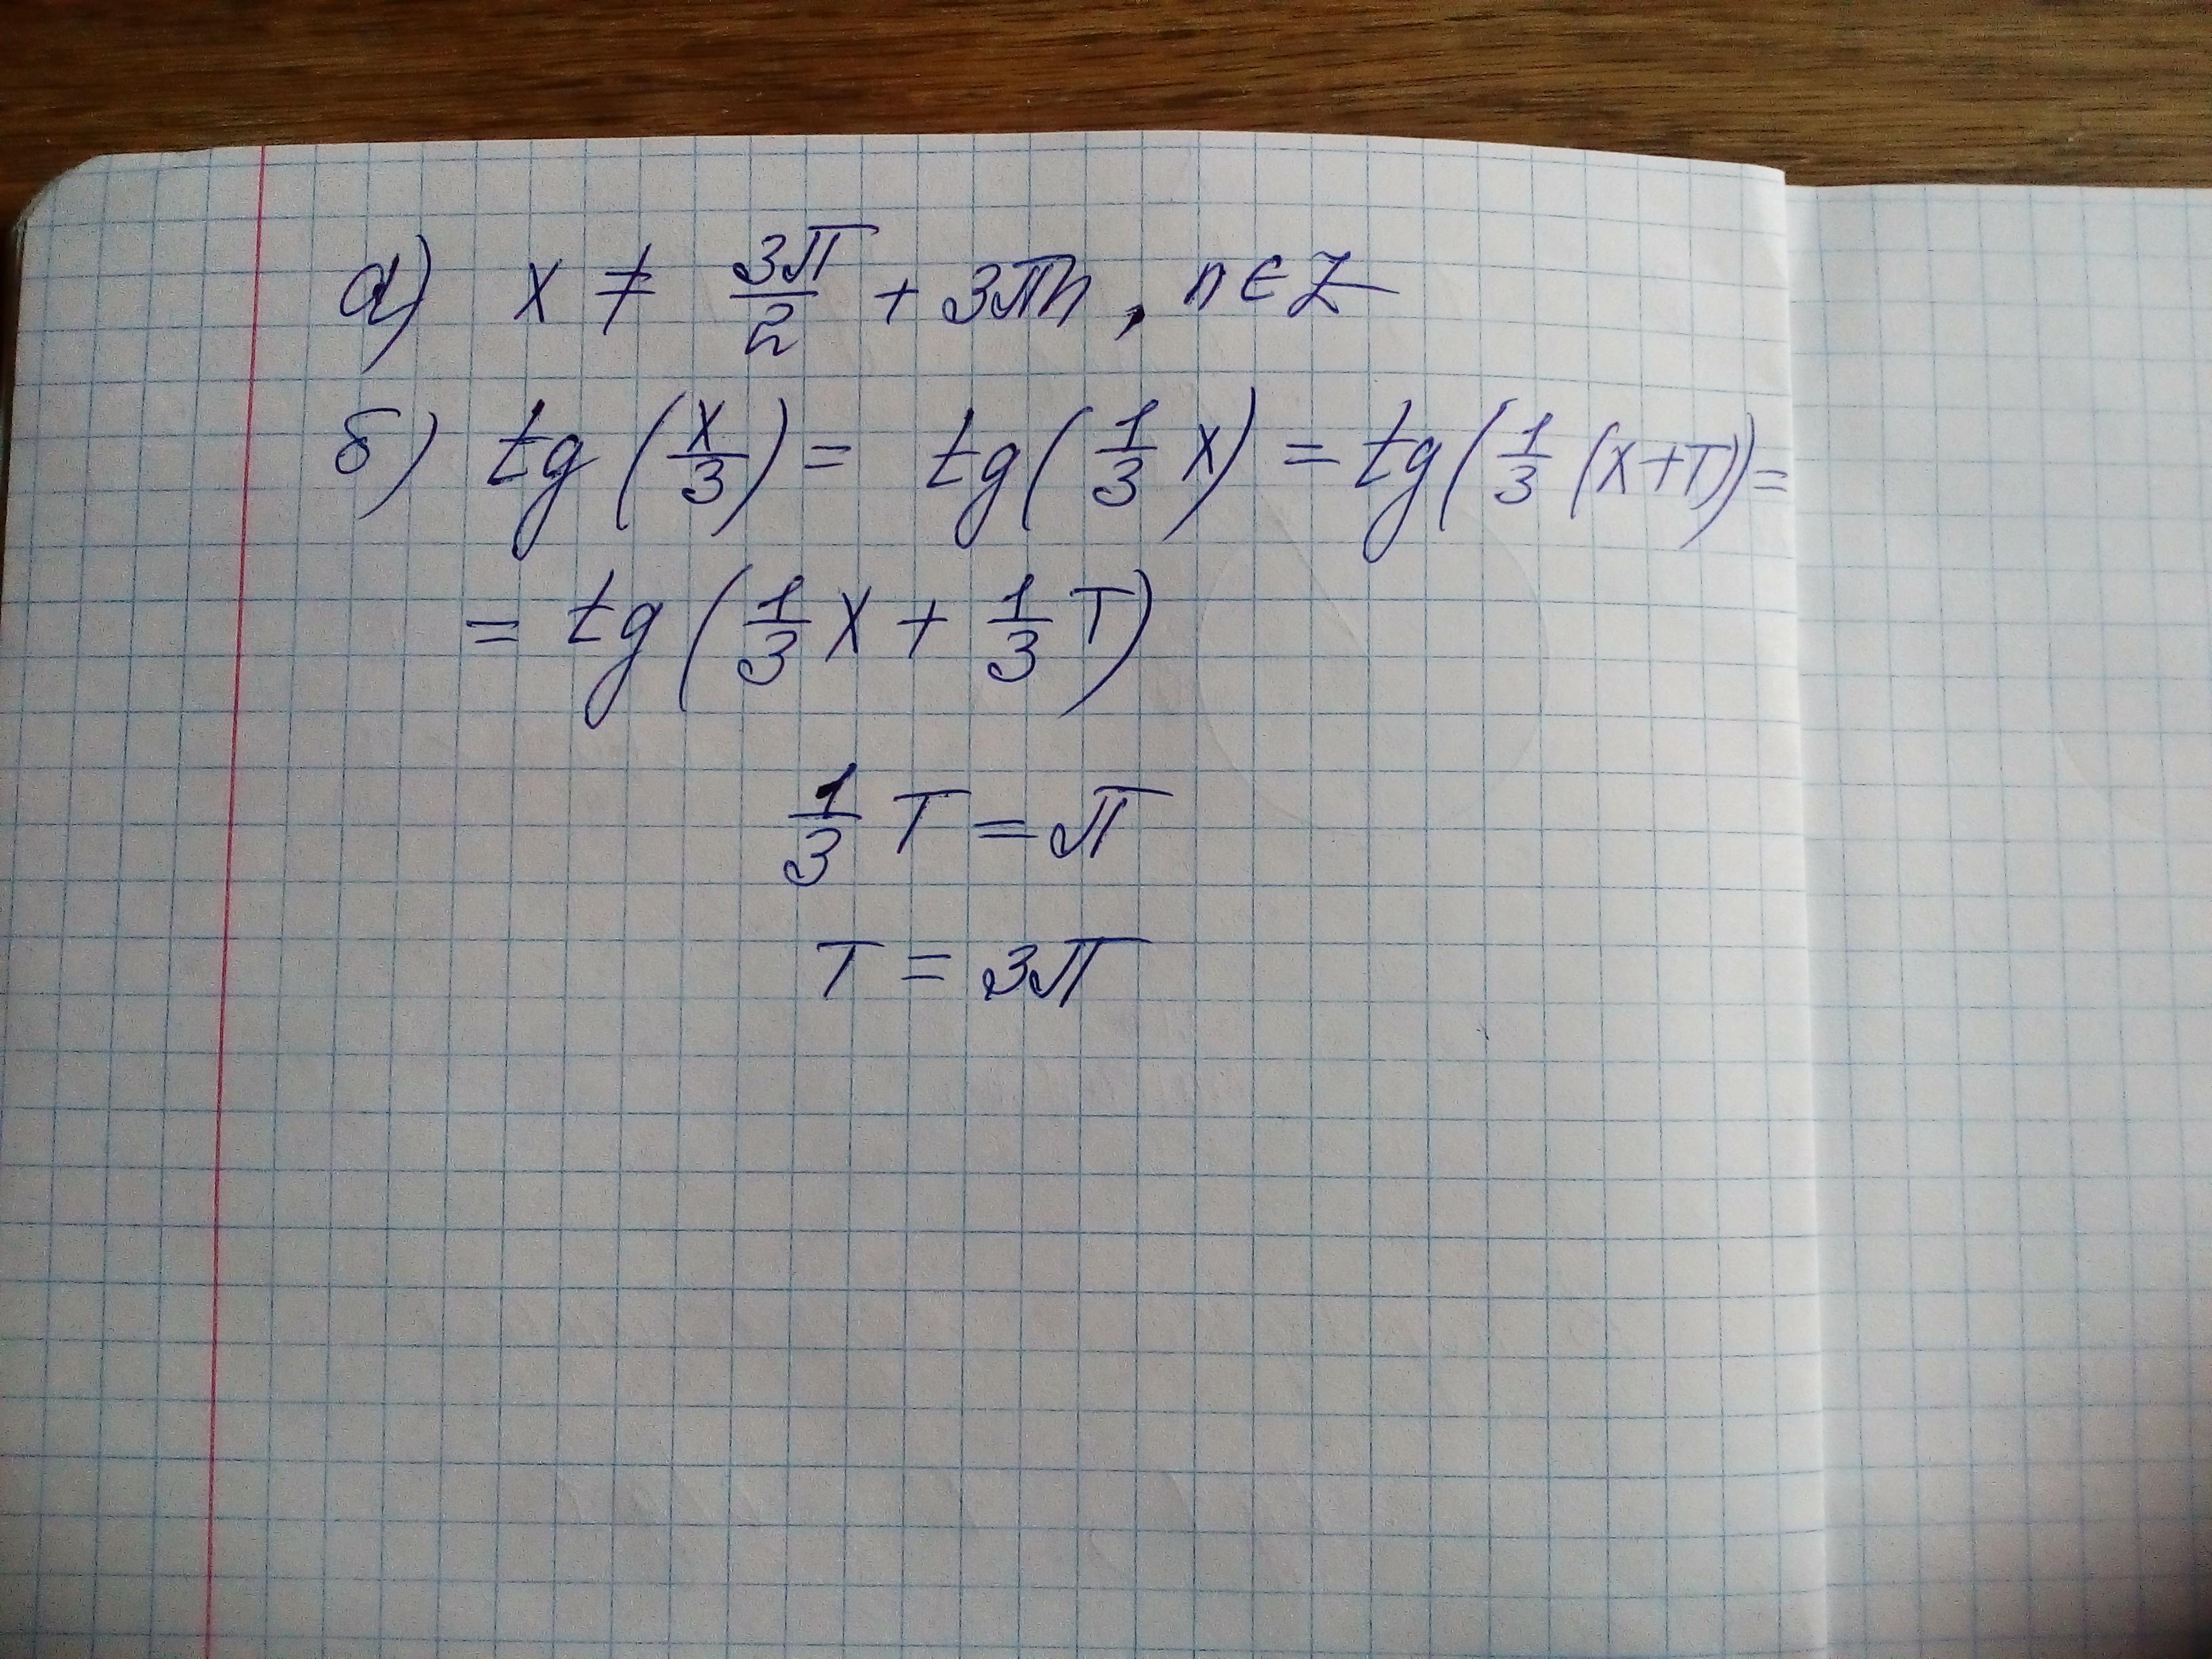 а) x ≠ 3π/2 + 3πn, n ∈ Z
б) tg(x/3) = tg(1/3 x) = tg(1/3 (x+T)) =
= tg(1/3 x + 1/3 T)
1/3 T = π
T = 3π